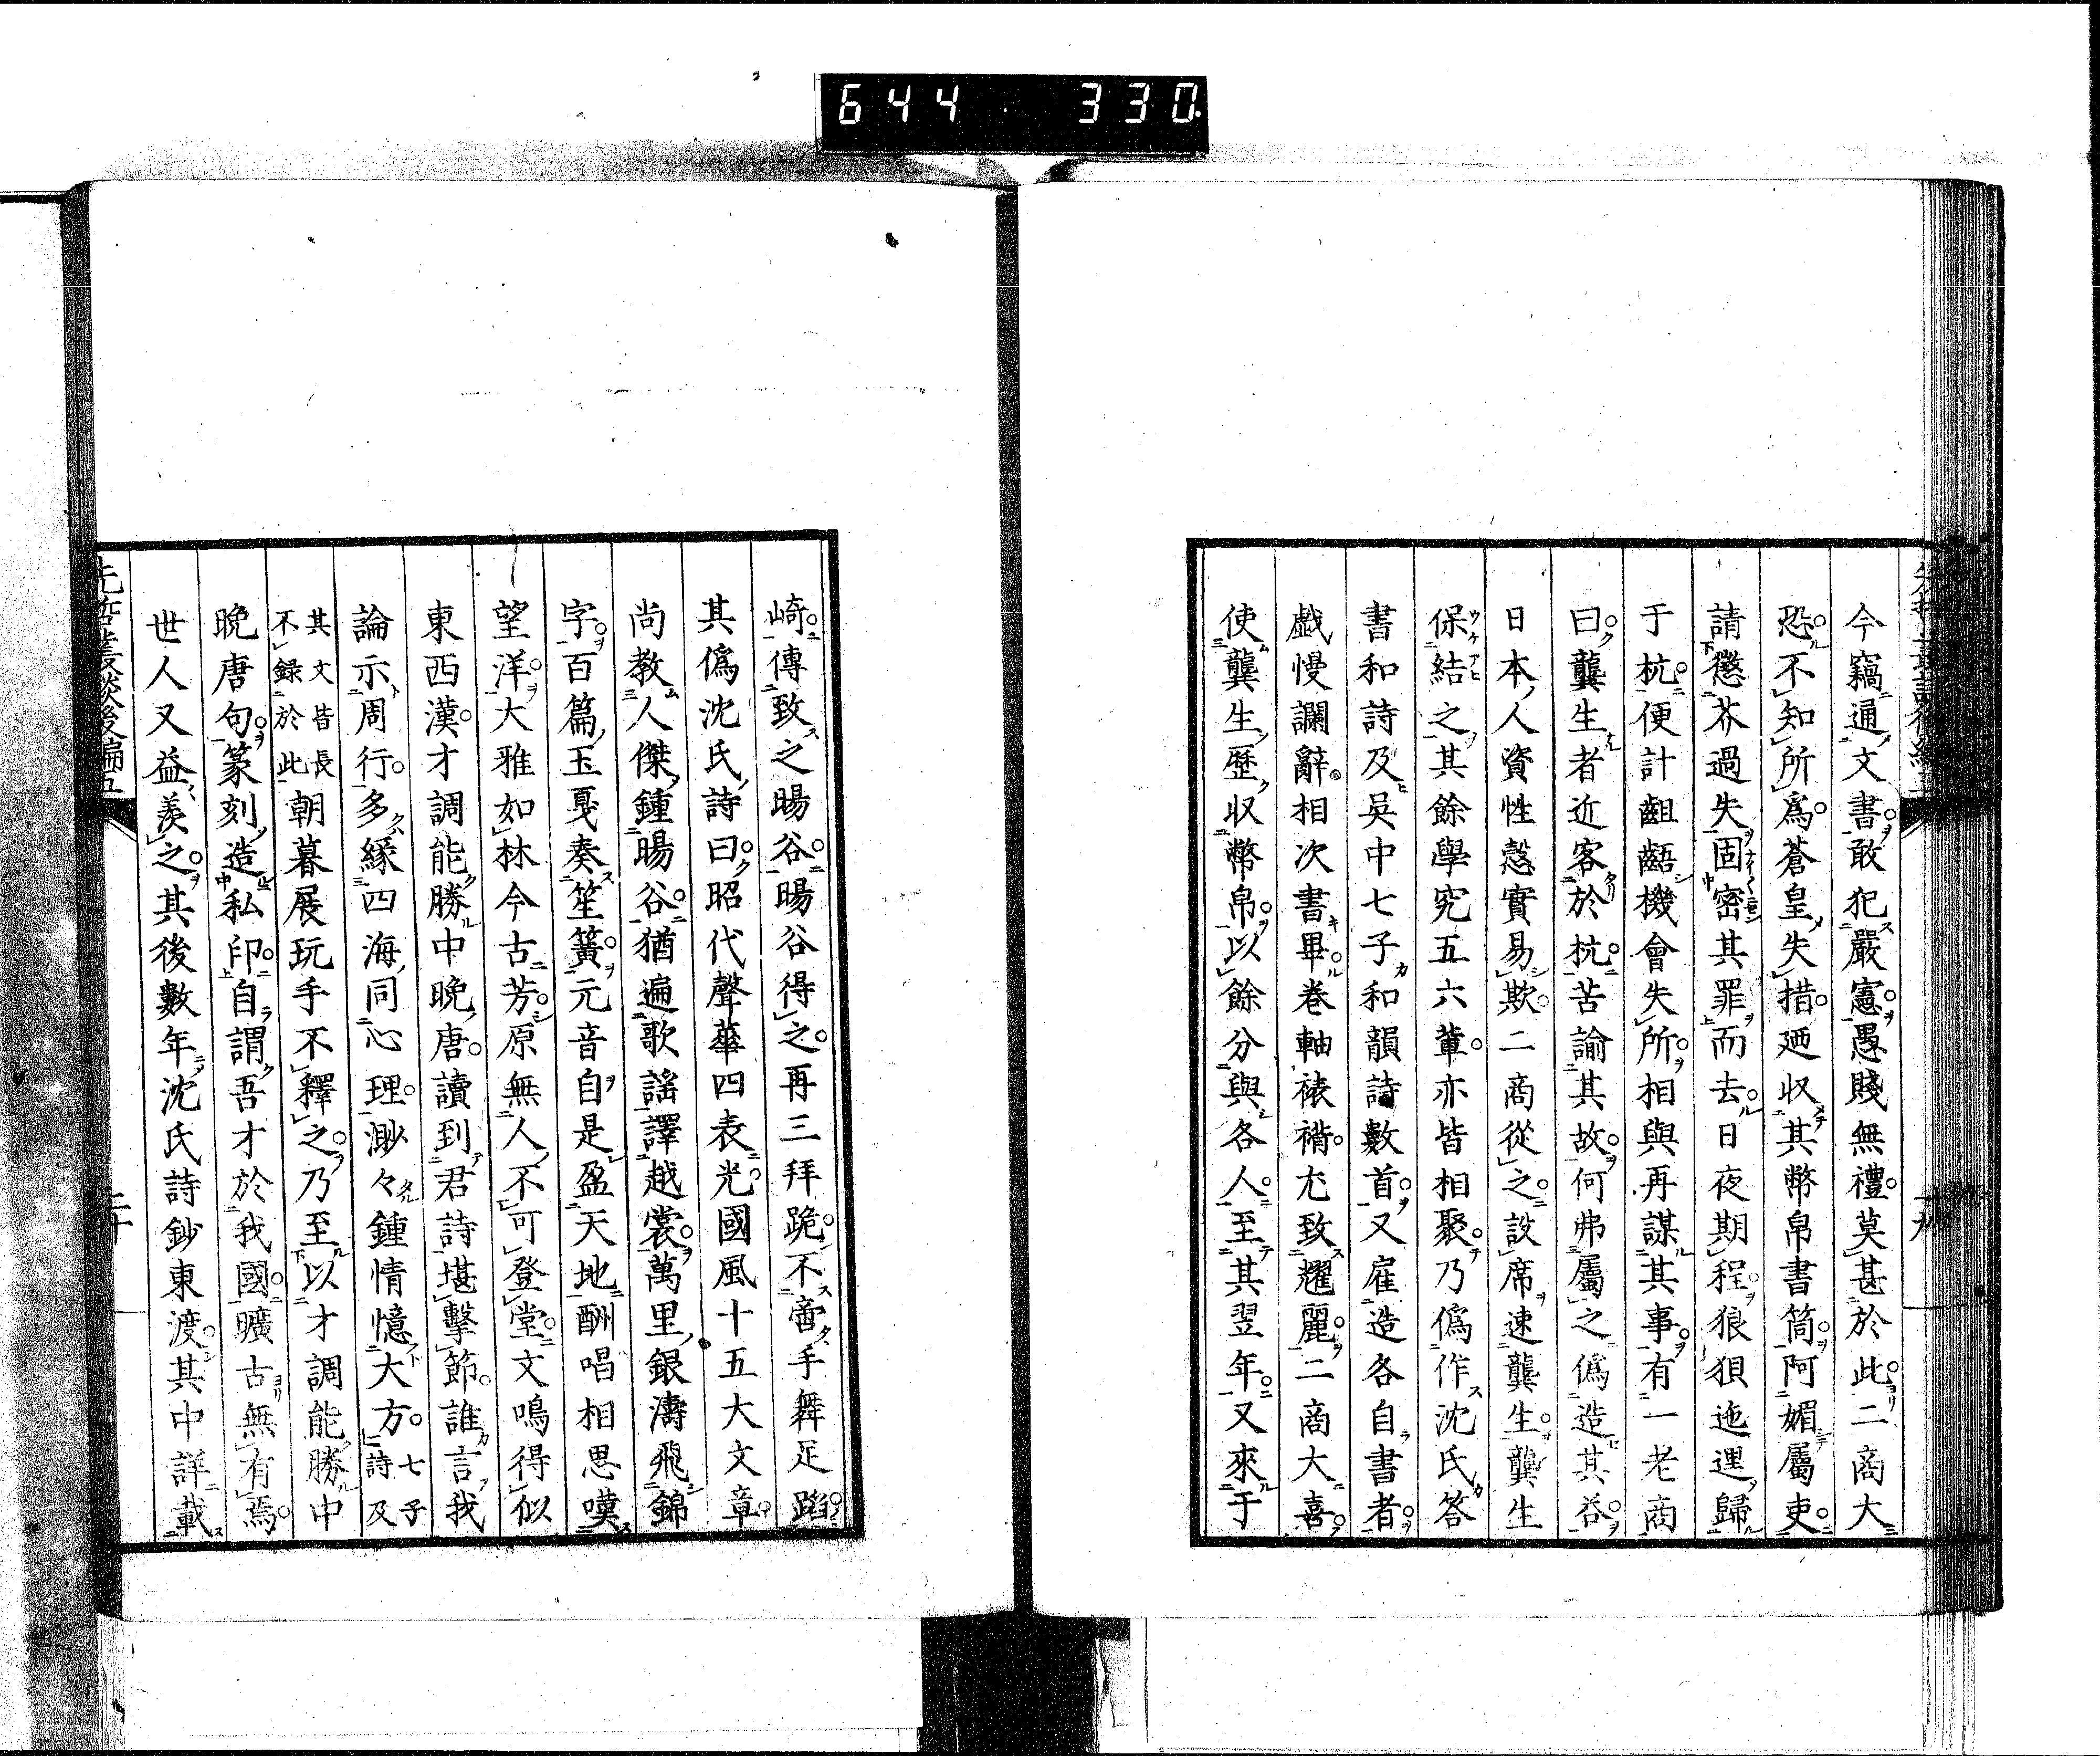 644 330
今竊通文書敢犯嚴憲愚賤無禮莫甚於此二商大
恐不知所爲蒼皇失措廼収其幣帛書简阿媚屬吏
請懲芥過失固密其罪而去日夜期程狼狽迤逦歸
于杭便計齟齬機會失所相與再謀其事有一老商
曰龔生者近客於杭苦諭其故何弗屬之僞造其荅
日本人資性愨實易欺二商從之設席速龔生龔生
保結之其餘學究五六輩亦皆相聚乃僞作沈氏答
書和詩及吳中七子和韻詩數首又雇造各自書者
戯慢讕辭相次書畢卷軸裱褙尤致耀麗二商大喜
使龔生歷収幣帛以餘分與各人至其翌年又來于
崎傳致之暘谷暘谷得之再三拜跪不啻手舞足蹈
其僞沈氏詩曰昭代聲華四表光國風十五大文章
尚教人傑鍾暘谷猶遍歌謡譯越裳萬里銀濤飛錦
字百篇玉戛奏笙簧元音自是盈天地酬唱相思嘆
望洋大雅如林今古芳原無人不可登堂文鳴得似
東西漢才調能勝中晚唐讀到君詩堪擊節誰言我
論示周行多緣四海同心理渺々鍾情憶大方七子詩及
其文皆長不録於此朝暮展玩手不釋之乃至以才調能勝中
晩唐句篆刻造私印自謂吾才於我國曠古無有焉
世人又益羨之其後數年沈氏詩鈔東渡其中詳載
先哲叢談後編五